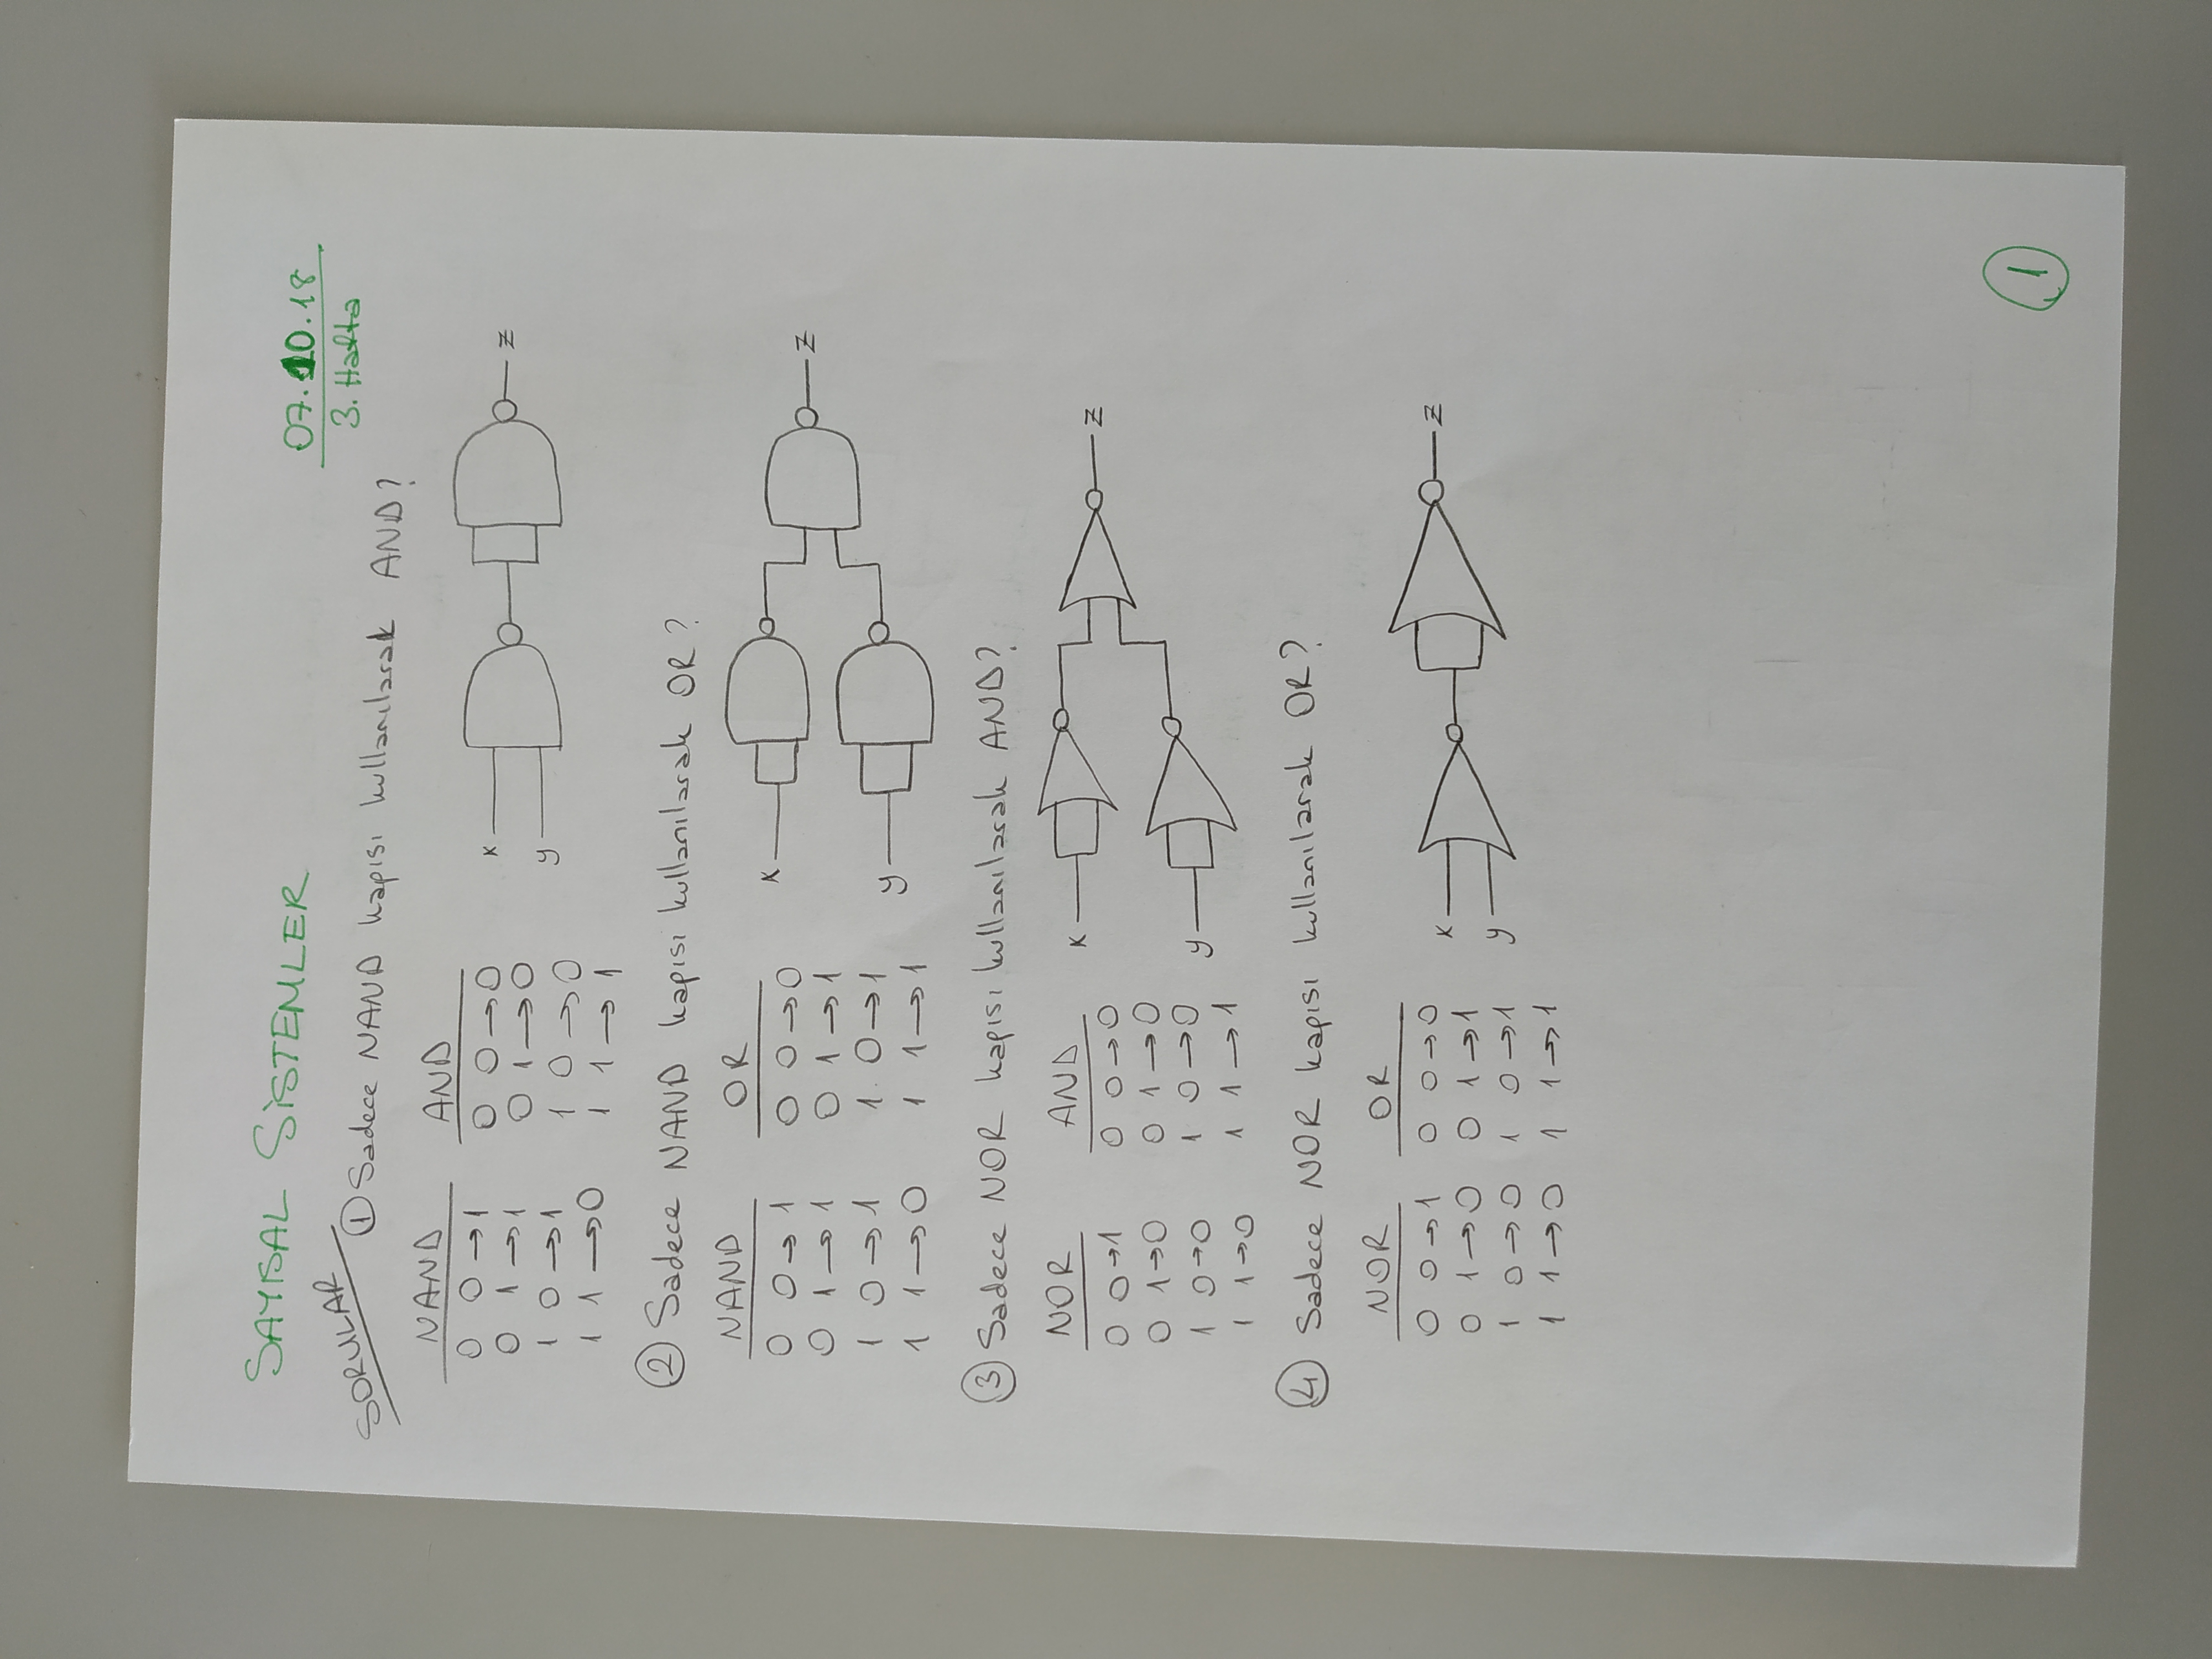 SAYISAL SİSTEMLER
07.10.18
3. Hafta
SORULAR
① Sadece NAND kapısı kullanılarak AND?
NAND AND
0 0→1 0 0→0
0 1→1 0 1→0
1 0→1 1 0→0
1 1→0 1 1→1
x
y
z
② Sadece NAND kapısı kullanılarak OR?
NAND OR
0 0→1 0 0→0
0 1→1 0 1→1
1 0→1 1 0→1
1 1→0 1 1→1
x
y
z
③ Sadece NOR kapısı kullanılarak AND?
NOR AND
0 0→1 0 0→0
0 1→0 0 1→0
1 0→0 1 0→0
1 1→0 1 1→1
x
y
z
④ Sadece NOR kapısı kullanılarak OR?
NOR OR
0 0→1 0 0→0
0 1→0 0 1→1
1 0→0 1 0→1
1 1→0 1 1→1
x
y
z
1